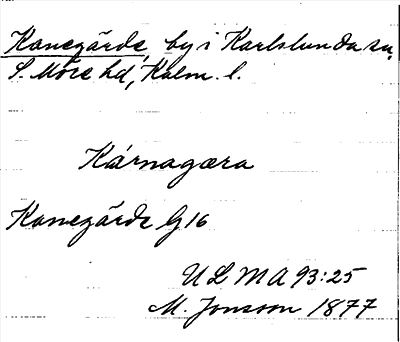 Kanegärde, by i Karlslunda sn,
S. Möre hd, Kalm. l.
Kárnagæra
Kanegärde G16
ULMA 93:25
M. Jonsson 1877